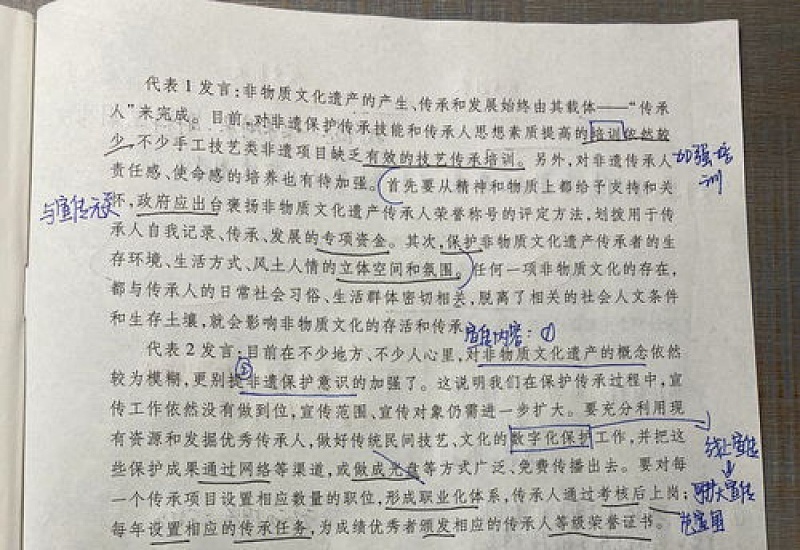 代表1发言:非物质文化遗产的产生、传承和发展始终由其载体——“传承
人”来完成。目前,对非遗保护传承技能和传承人思想素质提高的培训依然较
少,不少手工技艺类非遗项目缺乏有效的技艺传承培训。另外,对非遗传承人
加强培
训
责任感、使命感的培养也有待加强。首先要从精神和物质上都给予支持和关
与宣传无关
怀,政府应出台褒扬非物质文化遗产传承人荣誉称号的评定方法,划拨用于传
承人自我记录、传承、发展的专项资金。其次,保护非物质文化遗产传承者的生
存环境、生活方式、风土人情的立体空间和氛围。任何一项非物质文化的存在,
都与传承人的日常社会习俗、生活群体密切相关,脱离了相关的社会人文条件
和生存土壤,就会影响非物质文化的存活和传承
宣传内容:①
代表2发言:目前在不少地方、不少人心里,对非物质文化遗产的概念依然
②
较为模糊,更别提非遗保护意识的加强了。这说明我们在保护传承过程中,宣
传工作依然没有做到位,宣传范围、宣传对象仍需进一步扩大。要充分利用现
有资源和发掘优秀传承人,做好传统民间技艺、文化的数字化保护工作,并把这
线上宣传
些保护成果通过网络等渠道,或做成光盘等方式广泛、免费传播出去。要对每
扩大宣传
一个传承项目设置相应数量的职位,形成职业化体系,传承人通过考核后上岗;
范围
每年设置相应的传承任务,为成绩优秀者颁发相应的传承人等级荣誉证书。